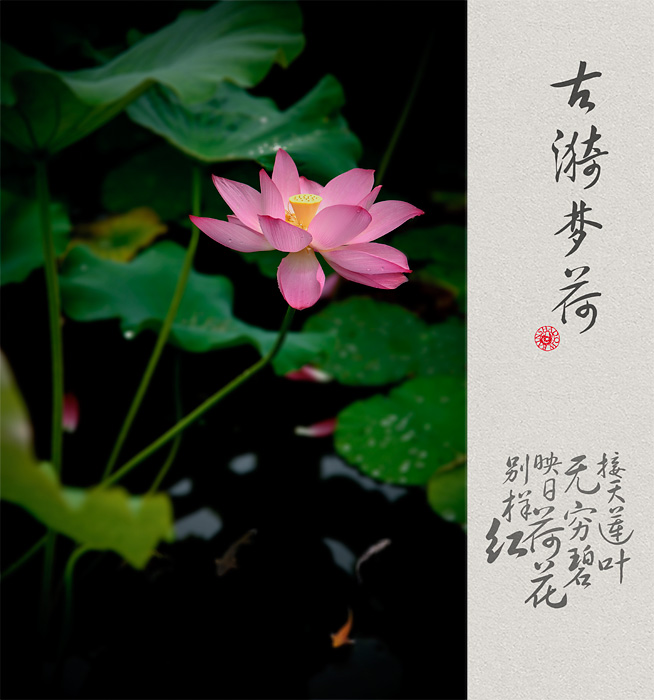 古漪梦荷
接天莲叶
无穷碧
映日荷花
别样红